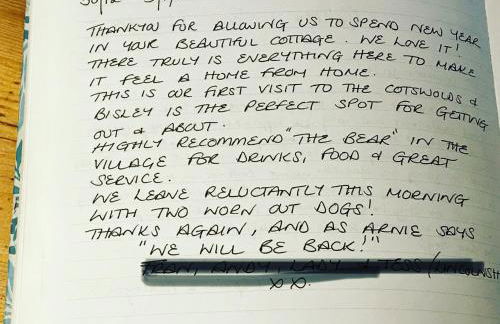 THANKYOU FOR ALLOWING US TO SPEND NEW YEAR
IN YOUR BEAUTIFUL COTTAGE. WE LOVE IT!
THERE TRULY IS EVERYTHING HERE TO MAKE
IT FEEL A HOME FROM HOME.
THIS IS OUR FIRST VISIT TO THE COTSWOLDS &
BISLEY IS THE PERFECT SPOT FOR GETTING
OUT & ABOUT.
HIGHLY RECOMMEND "THE BEAR" IN THE
VILLAGE FOR DRINKS, FOOD & GREAT
SERVICE.
WE LEAVE RELUCTANTLY THIS MORNING
WITH TWO WORN OUT DOGS!
THANKS AGAIN, AND AS ARNIE SAYS
"WE WILL BE BACK!"
XX.